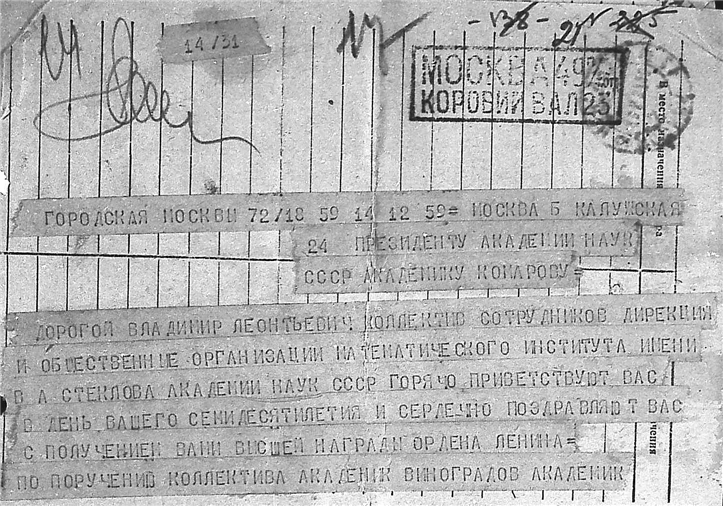 14/31
МОСКВА 49
КОРОВИЙ ВАЛ 23
В место назначения
ГОРОДСКАЯ МОСКВЫ 72/18 59 14 12 59= МОСКВА Б КАЛУЖСКАЯ
24 ПРЕЗИДЕНТУ АКАДЕМИИ НАУК
СССР АКАДЕМИКУ КОМАРОВУ=
ДОРОГОЙ ВЛАДИМИР ЛЕОНТЬЕВИЧ КОЛЛЕКТИВ СОТРУДНИКОВ ДИРЕКЦИЯ
И ОБЩЕСТВЕННЫЕ ОРГАНИЗАЦИИ МАТЕМАТИЧЕСКОГО ИНСТИТУТА ИМЕНИ
В А СТЕКЛОВА АКАДЕМИИ НАУК СССР ГОРЯЧО ПРИВЕТСТВУЮТ ВАС
В ДЕНЬ ВАШЕГО СЕМИДЕСЯТИЛЕТИЯ И СЕРДЕЧНО ПОЗДРАВЛЯЮТ ВАС
С ПОЛУЧЕНИЕМ ВАМИ ВЫСШЕЙ НАГРАДЫ ОРДЕНА ЛЕНИНА=
ПО ПОРУЧЕНИЮ КОЛЛЕКТИВА АКАДЕМИК ВИНОГРАДОВ АКАДЕМИК